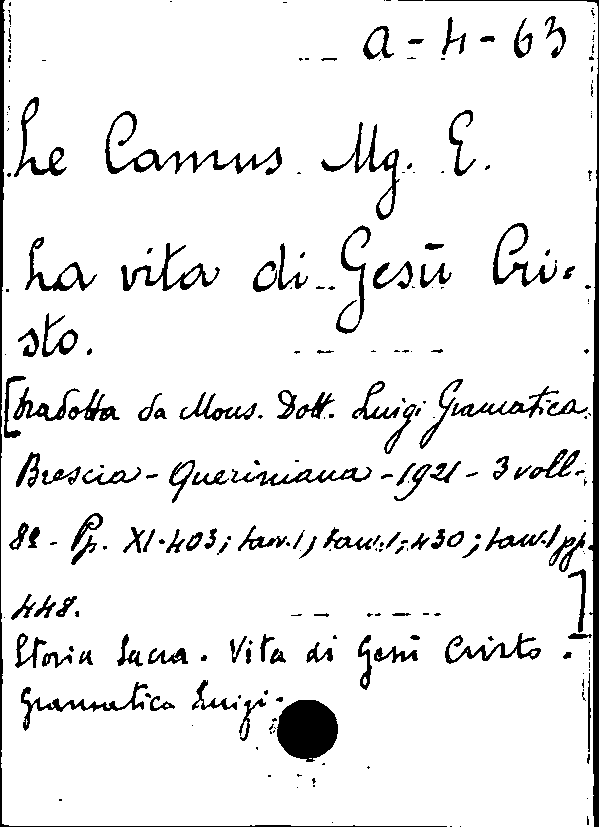 a-4-63
Le Camus Mg. E.
La vita di Gesū Cri=
sto.
[tradotta da Mons. Dott. Luigi Gramatica
Brescia - Queriniana - 1921 - 3 voll-
8º - Pp. XI-403; tav.1; tav.1; 430; tav.1 pp.
448. ]
Storia Sacra. Vita di Gesū Cristo.
Gramatica Luigi.